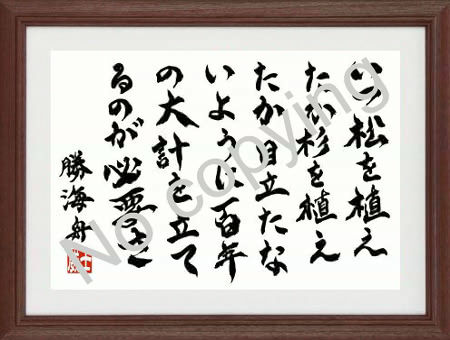 いつ松を植え
たか杉を植え
たか目立たな
いように百年
の大計を立て
るのが必要さ
勝海舟
No copying